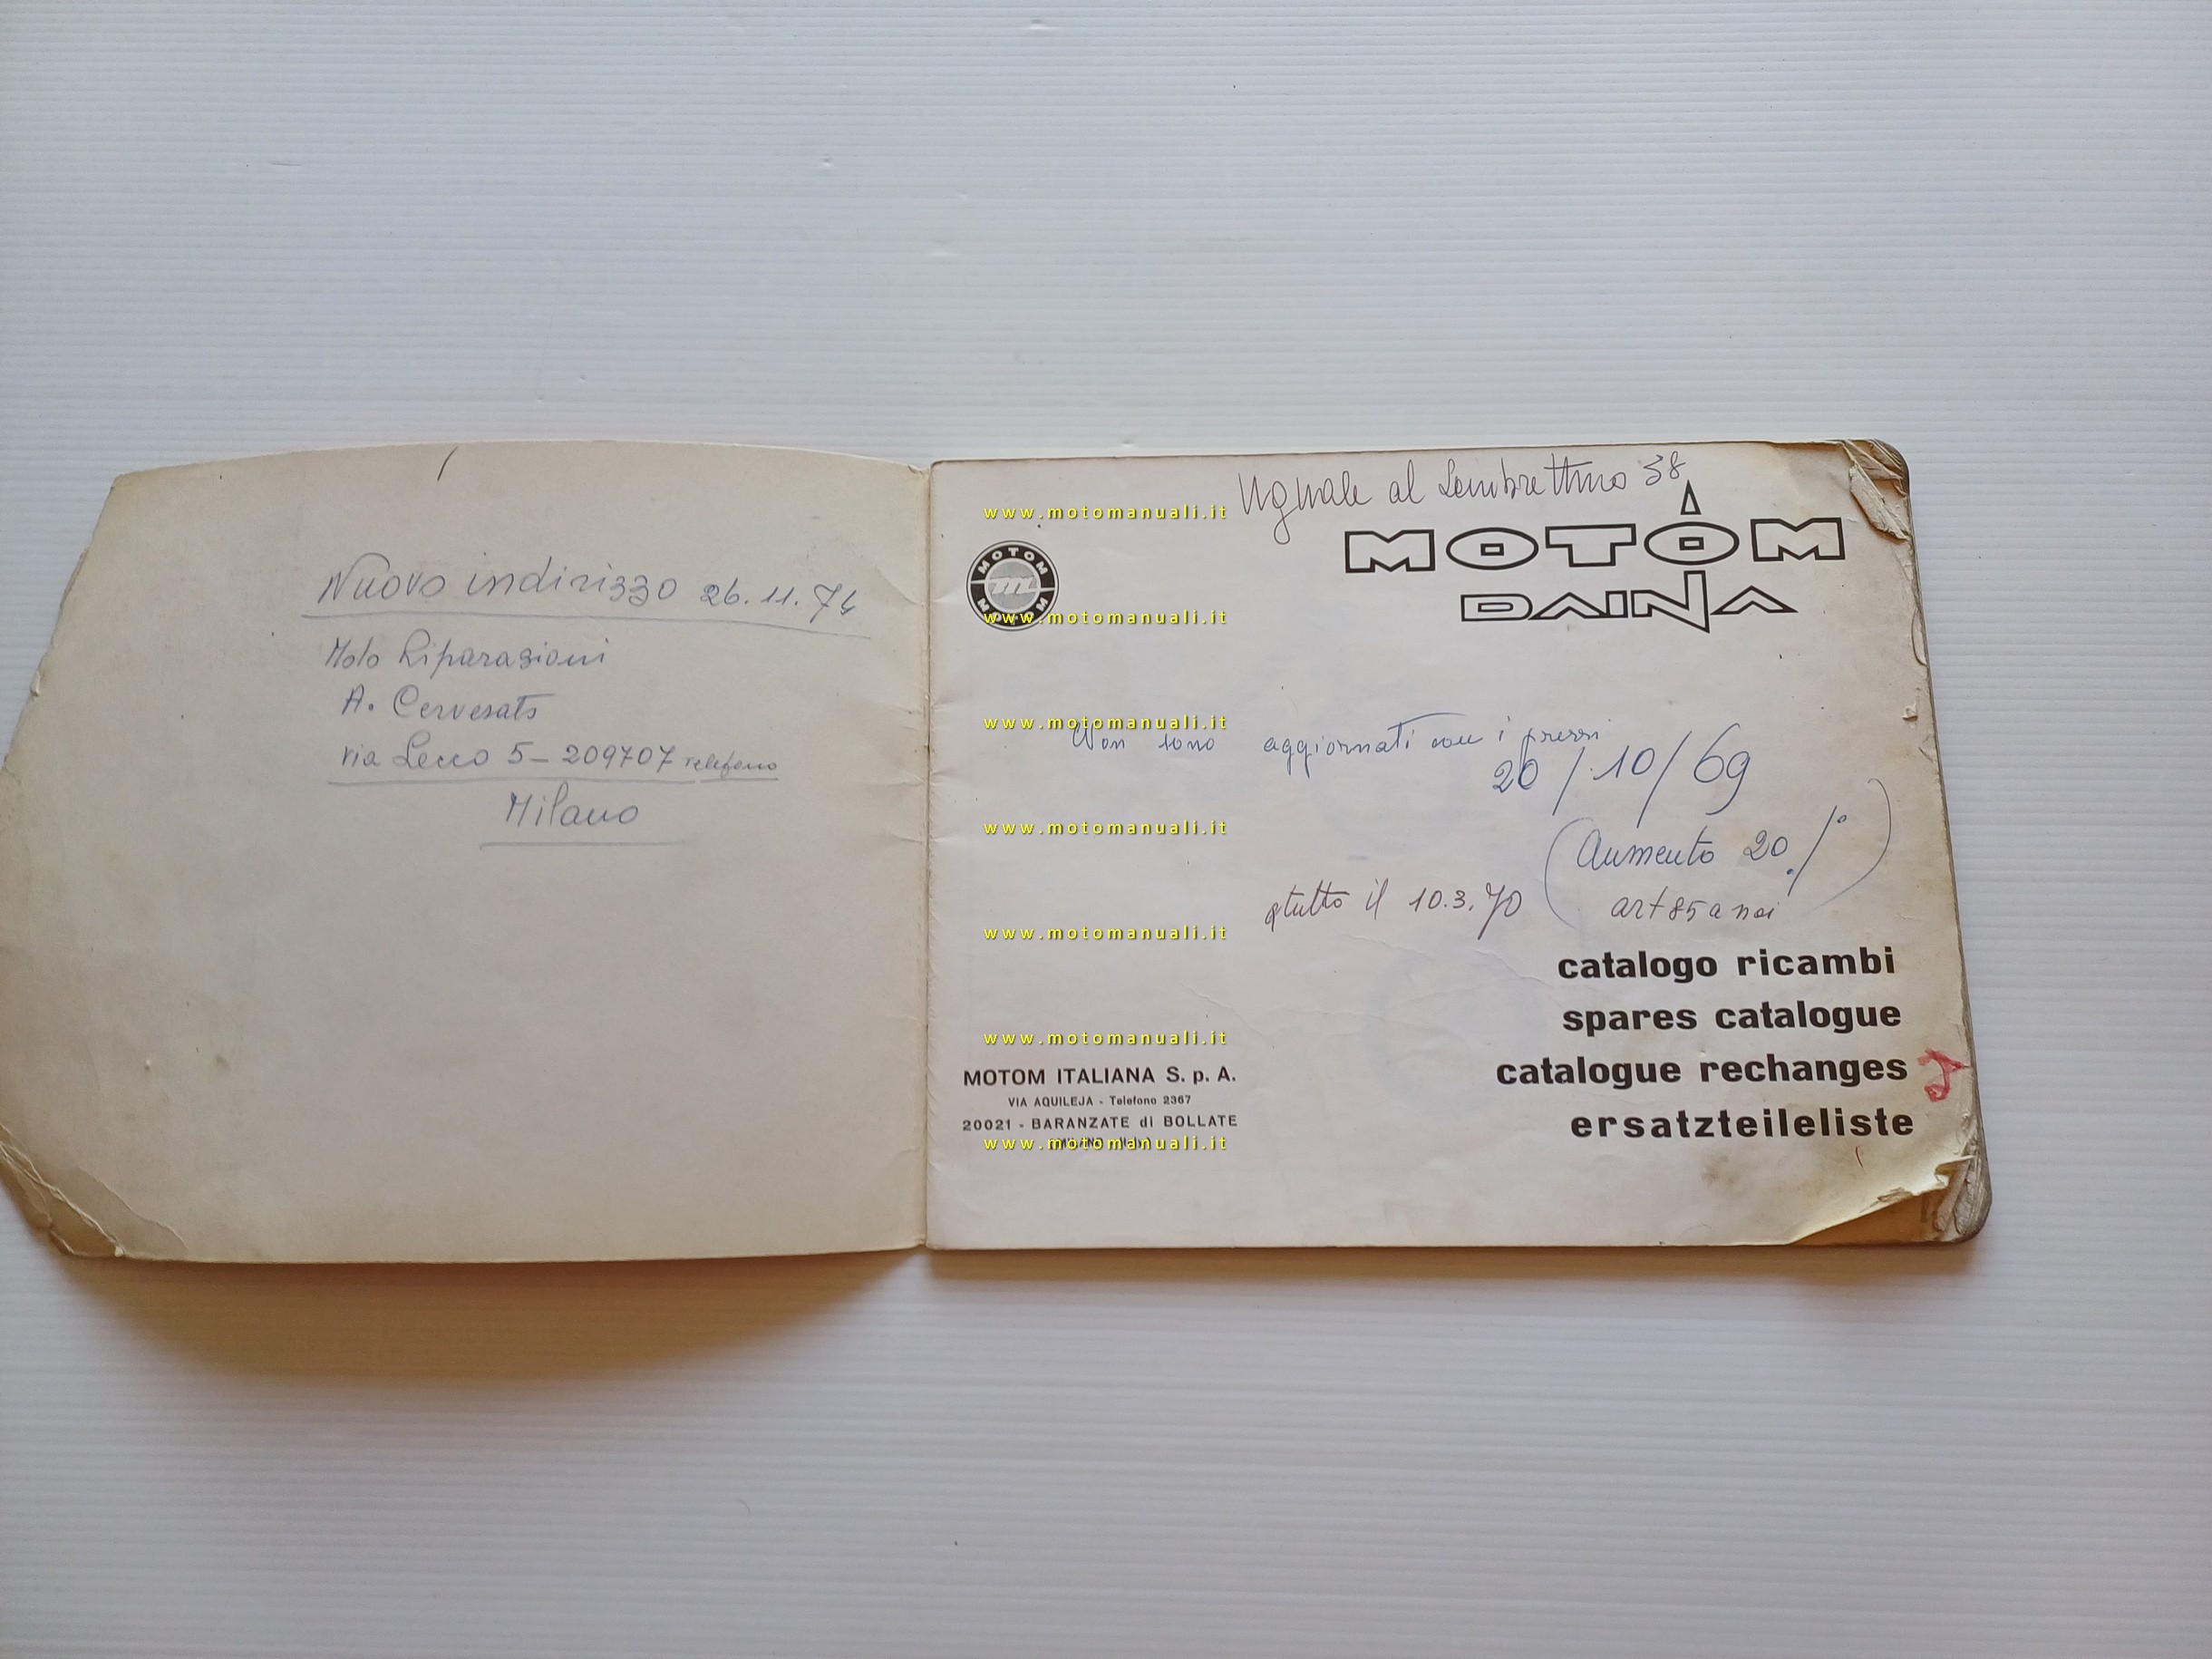 Nuovo indirizzo 26.11.74
Moto Riparazioni
A. Cervesato
via Lecco 5 - 209707 telefono
Milano
Uguale al Lambrettino 38
www.motomanuali.it
MOTOM
DAINA
MOTOM
m
MOTOM
www.motomanuali.it
www.motomanuali.it
Non sono aggiornati con i prezzi
20/10/69
www.motomanuali.it
(Aumento 20%
il 10.3.70
art 85 a
www.motomanuali.it
catalogo ricambi
spares catalogue
catalogue rechanges
ersatzteileliste
www.motomanuali.it
MOTOM ITALIANA S. p. A.
VIA AQUILEJA - Telefono 2367
20021 - BARANZATE di BOLLATE
www.motomanuali.it